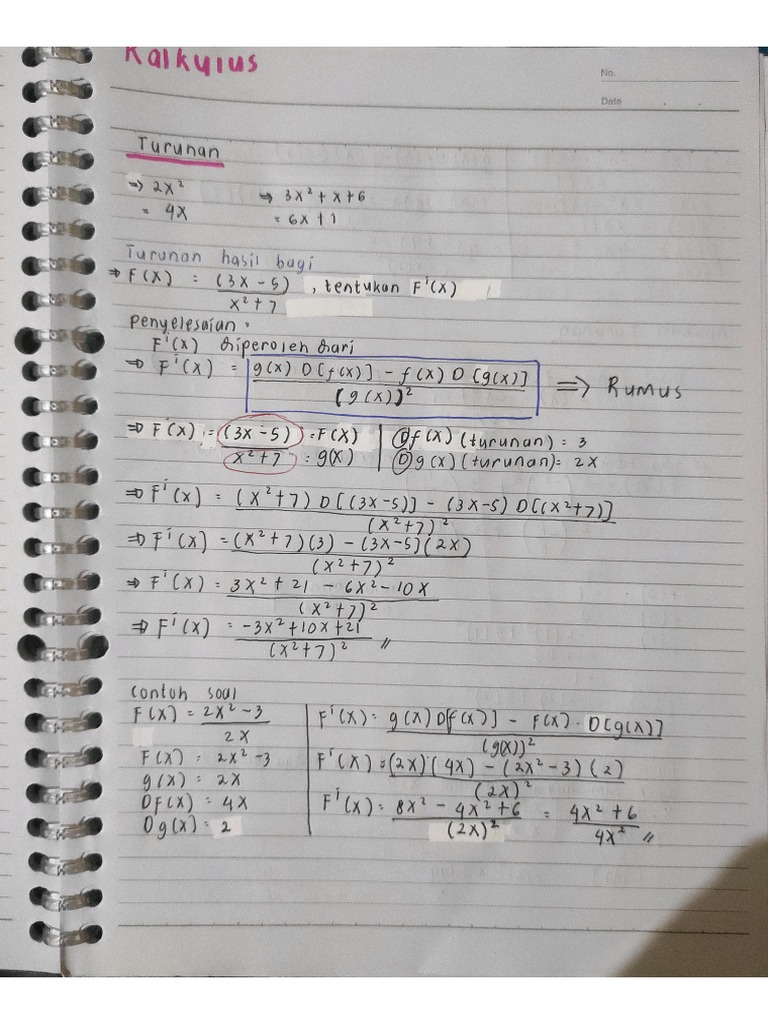 Kalkulus
No.
Date
Turunan
⇒ 2x² ⇒ 3x² + x + 6
= 4x = 6x + 1
Turunan hasil bagi
⇒ F(x) = (3x - 5) / x² + 7 , tentukan F'(x)
Penyelesaian :
F'(x) diperoleh dari
⇒ F'(x) = g(x) D[f(x)] - f(x) D[g(x)] / [g(x)]² ⇒ Rumus
⇒ F'(x) = (3x - 5) = F(x) | D f(x) (turunan) = 3
x² + 7 = g(x) | D g(x) (turunan) = 2x
⇒ F'(x) = (x² + 7) D[(3x - 5)] - (3x - 5) D[(x² + 7)] / (x² + 7)²
⇒ F'(x) = (x² + 7)(3) - (3x - 5)(2x) / (x² + 7)²
⇒ F'(x) = 3x² + 21 - 6x² - 10x / (x² + 7)²
⇒ F'(x) = -3x² + 10x + 21 / (x² + 7)² //
contoh soal
F(x) = 2x² - 3 / 2x
F(x) = 2x² - 3
g(x) = 2x
Df(x) = 4x
Dg(x) = 2
F'(x) = g(x) D[f(x)] - F(x) · D[g(x)] / (g(x))²
F'(x) = (2x) (4x) - (2x² - 3) (2) / (2x)²
F'(x) = 8x² - 4x² + 6 / (2x)² = 4x² + 6 / 4x² //